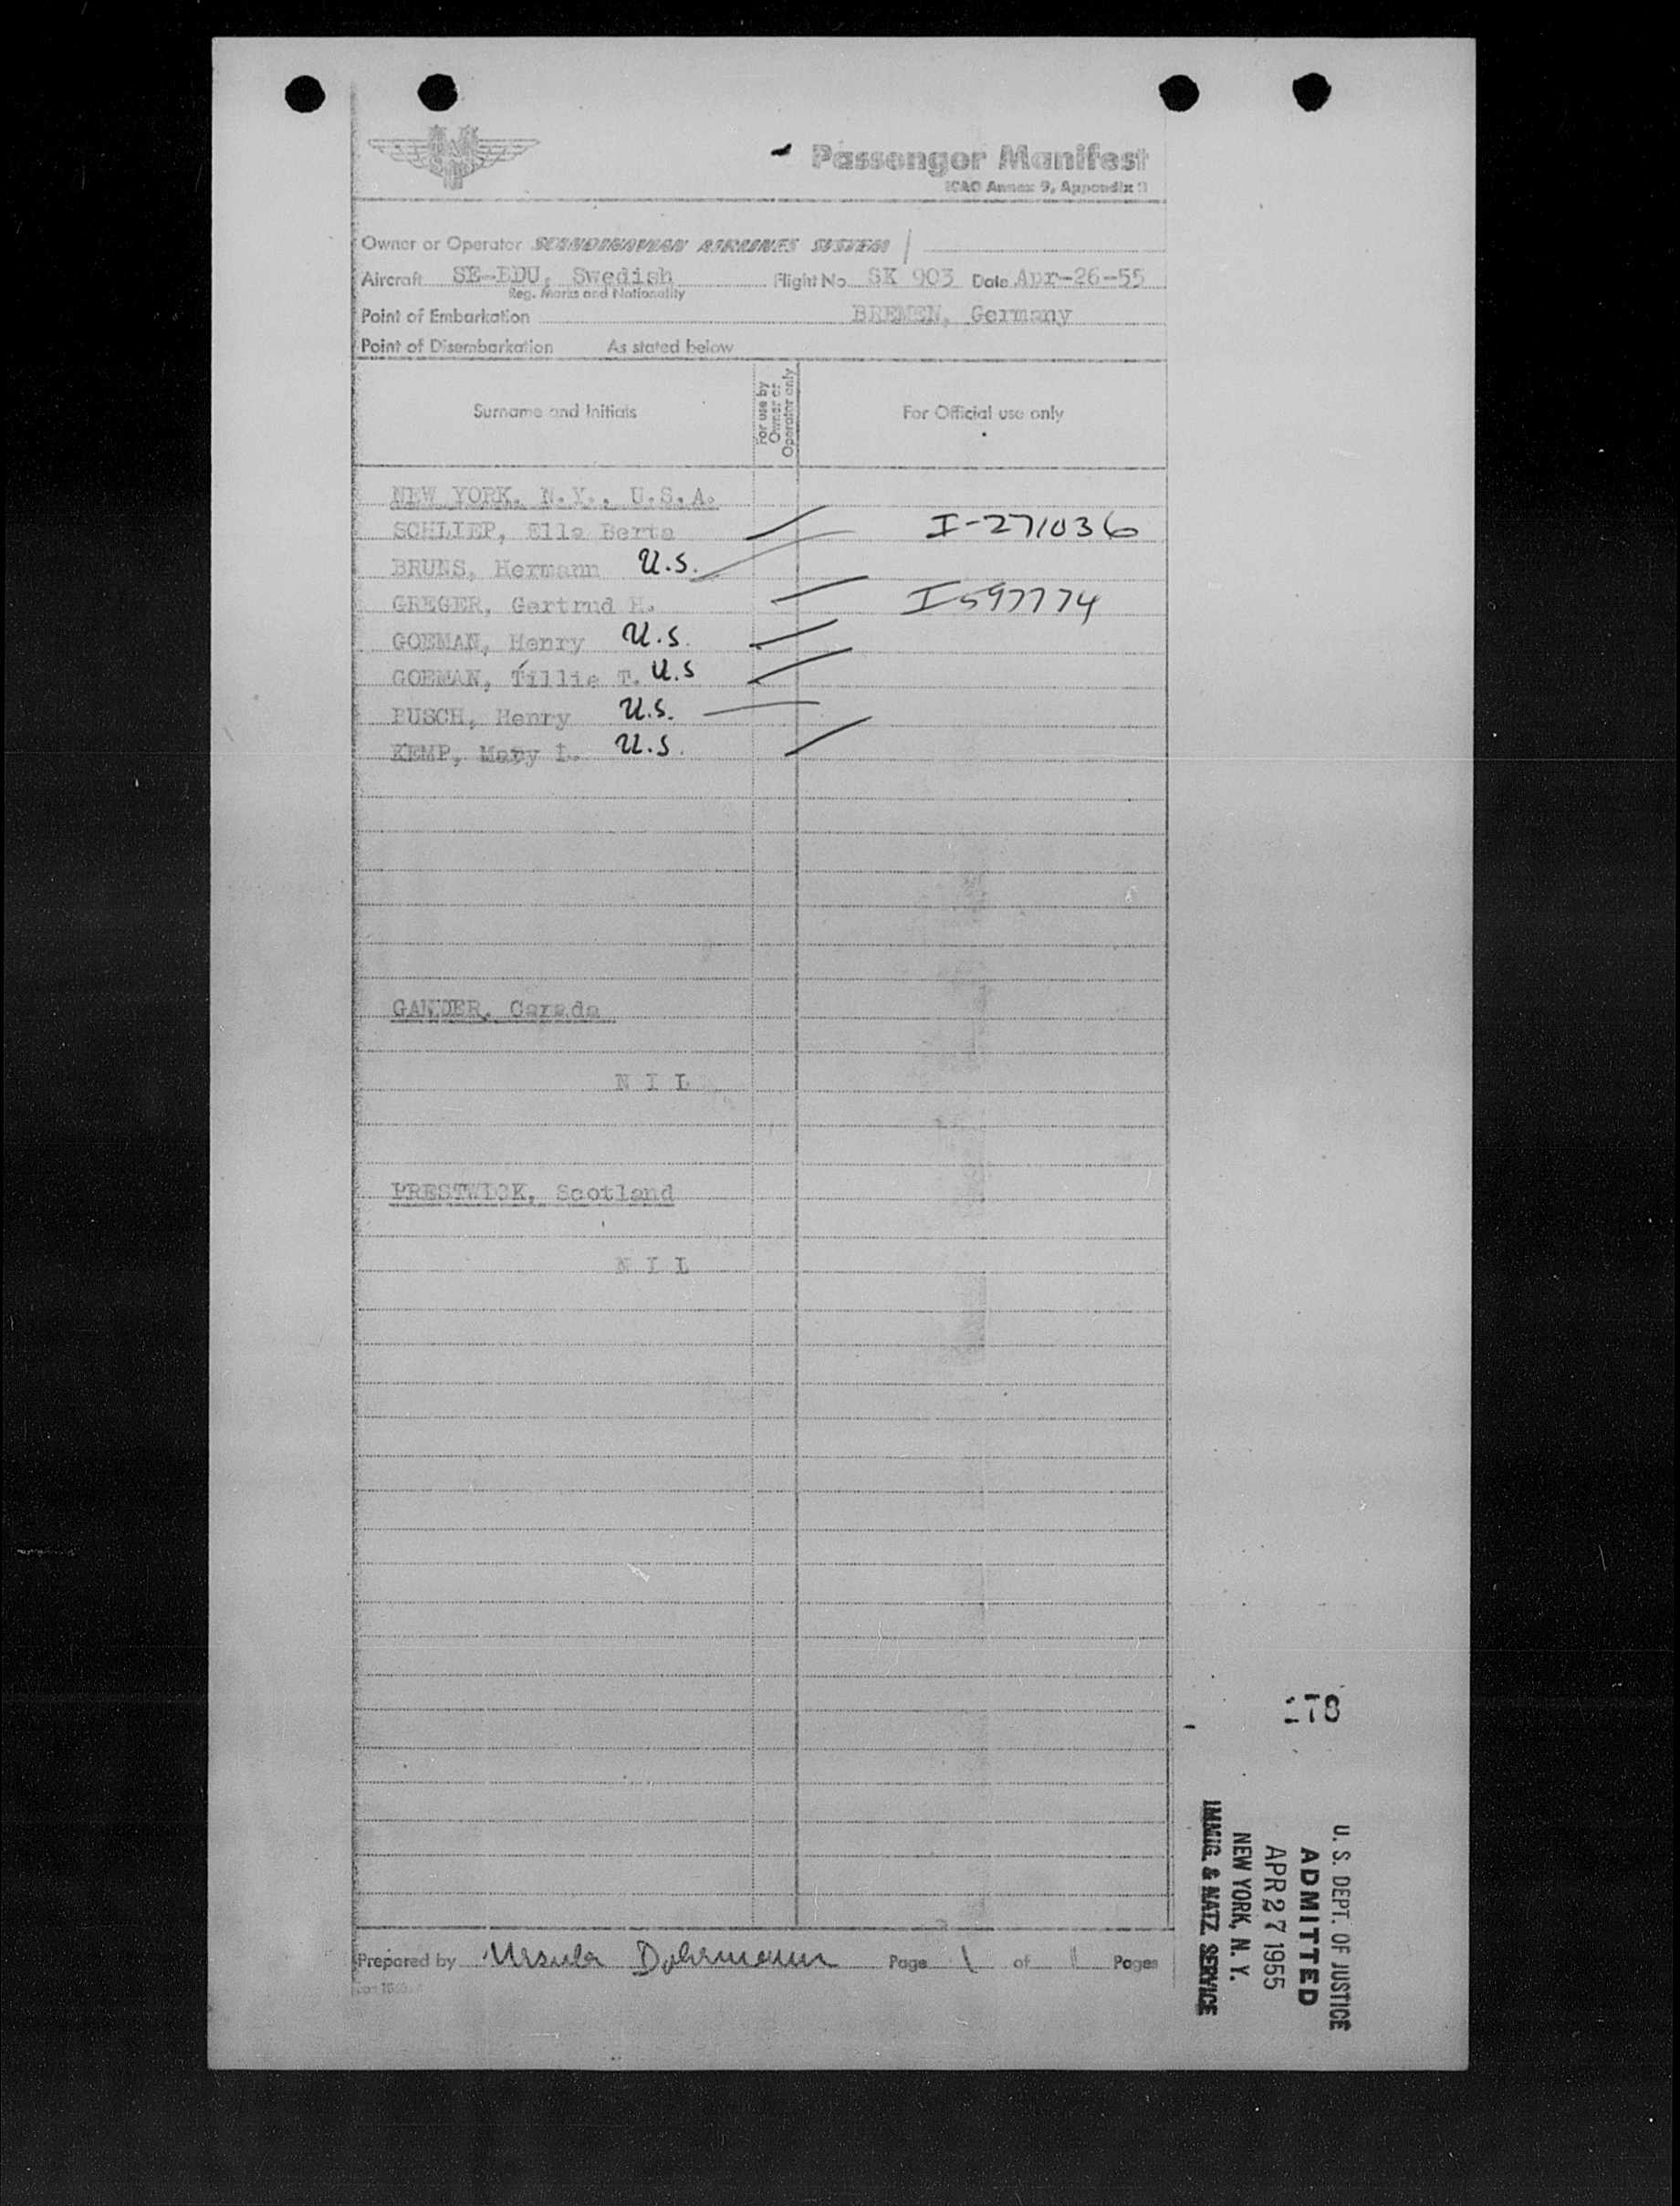 Passenger Manifest
ICAO Annex 9, Appendix
Owner or Operator SCANDINAVIAN AIRLINES SYSTEM
Aircraft SE-BDU, Swedish Flight No SK 903 Date Apr-26-55
Reg. Marks and Nationality
Point of Embarkation BREMEN, Germany
Point of Disembarkation As stated below
Surname and Initials
For use by
Owner or
Operator only
For Official use only
NEW YORK, N.Y., U.S.A.
SCHLIEP, Ella Berta I-271036
BRUNS, Hermann U.S.
GREGER, Gertrud H. I597774
GOEMAN, Henry U.S.
GOEMAN, Tillie T. U.S
BUSCH, Henry U.S.
KEMP, Mary L. U.S.
GANDER, Canada
N I L
PRESTWICK, Scotland
N I L
178
U. S. DEPT. OF JUSTICE
ADMITTED
APR 27 1955
NEW YORK, N. Y.
IMMIG. & NATZ. SERVICE
Prepared by Ursula Dohrmann Page 1 of 1 Pages